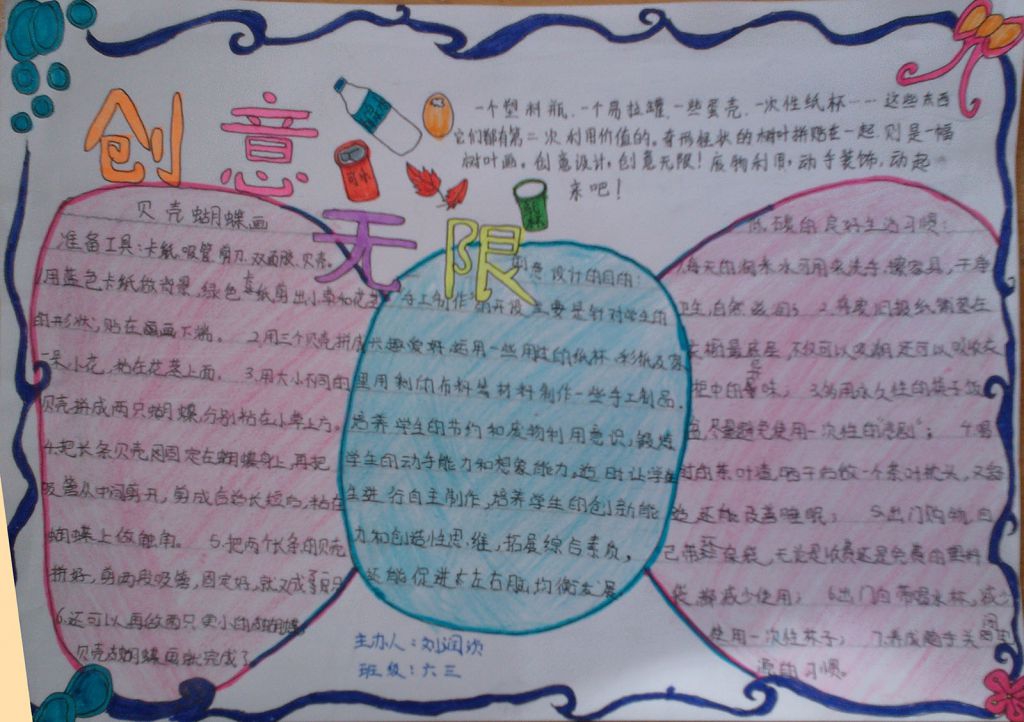 创意
无限
一个塑料瓶、一个易拉罐、一些蛋壳、一次性纸杯……这些东西
它们都有第二次利用价值的。奇形怪状的树叶拼贴在一起,则是一幅
树叶画。创意设计,创意无限!废物利用,动手装饰,动起
来吧!
可乐
贝壳蝴蝶画
准备工具:卡纸、吸管、剪刀、双面胶、贝壳。
1.用蓝色卡纸做背景,绿色卡纸剪出小草和花茎
的形状,贴在画面下端。 2.用三个贝壳拼成
一朵小花,粘在花茎上面。 3.用大小不同的
贝壳拼成两只蝴蝶,分别粘在小草上方。
4.把长条贝壳固定在蝴蝶身上,再把
吸管从中间剪开,剪成合适长短后,粘在
蝴蝶上做触角。 5.把两个长条的贝壳
拼好,剪两段吸管,固定好,就又成了
6.还可以再做两只更小的蝴蝶,
贝壳蝴蝶画就完成了
创意设计的目的:
"手工制作"的开设主要是针对学生的
兴趣爱好,运用一些用过的纸杯、彩纸及家
里用剩的布料等材料制作一些手工制品。
培养学生的节约和废物利用意识,锻炼
学生的动手能力和想象能力,适时让学
生进行自主制作,培养学生的创新能
力和创造性思维,拓展综合素质,
还能促进左右脑均衡发展
低碳的良好生活习惯:
1.每天的淘米水可用来洗手、擦家具,干净
卫生,自然滋润; 2.将废旧报纸铺垫在
衣橱最底层,不仅可以吸潮,还可以吸收衣
柜中的异味; 3.多用永久性的筷子、饭
盒,尽量避免使用一次性的餐具; 4.喝
过的茶叶渣,晒干后做一个茶叶枕头,又舒
适,还能改善睡眠; 5.出门购物,自
己带环保袋,无论是收费还是免费的塑料
袋,都减少使用; 6.出门自带喝水杯,减少
使用一次性杯子; 7.养成随手关闭电
源的习惯。
主办人:刘润
班级:六三